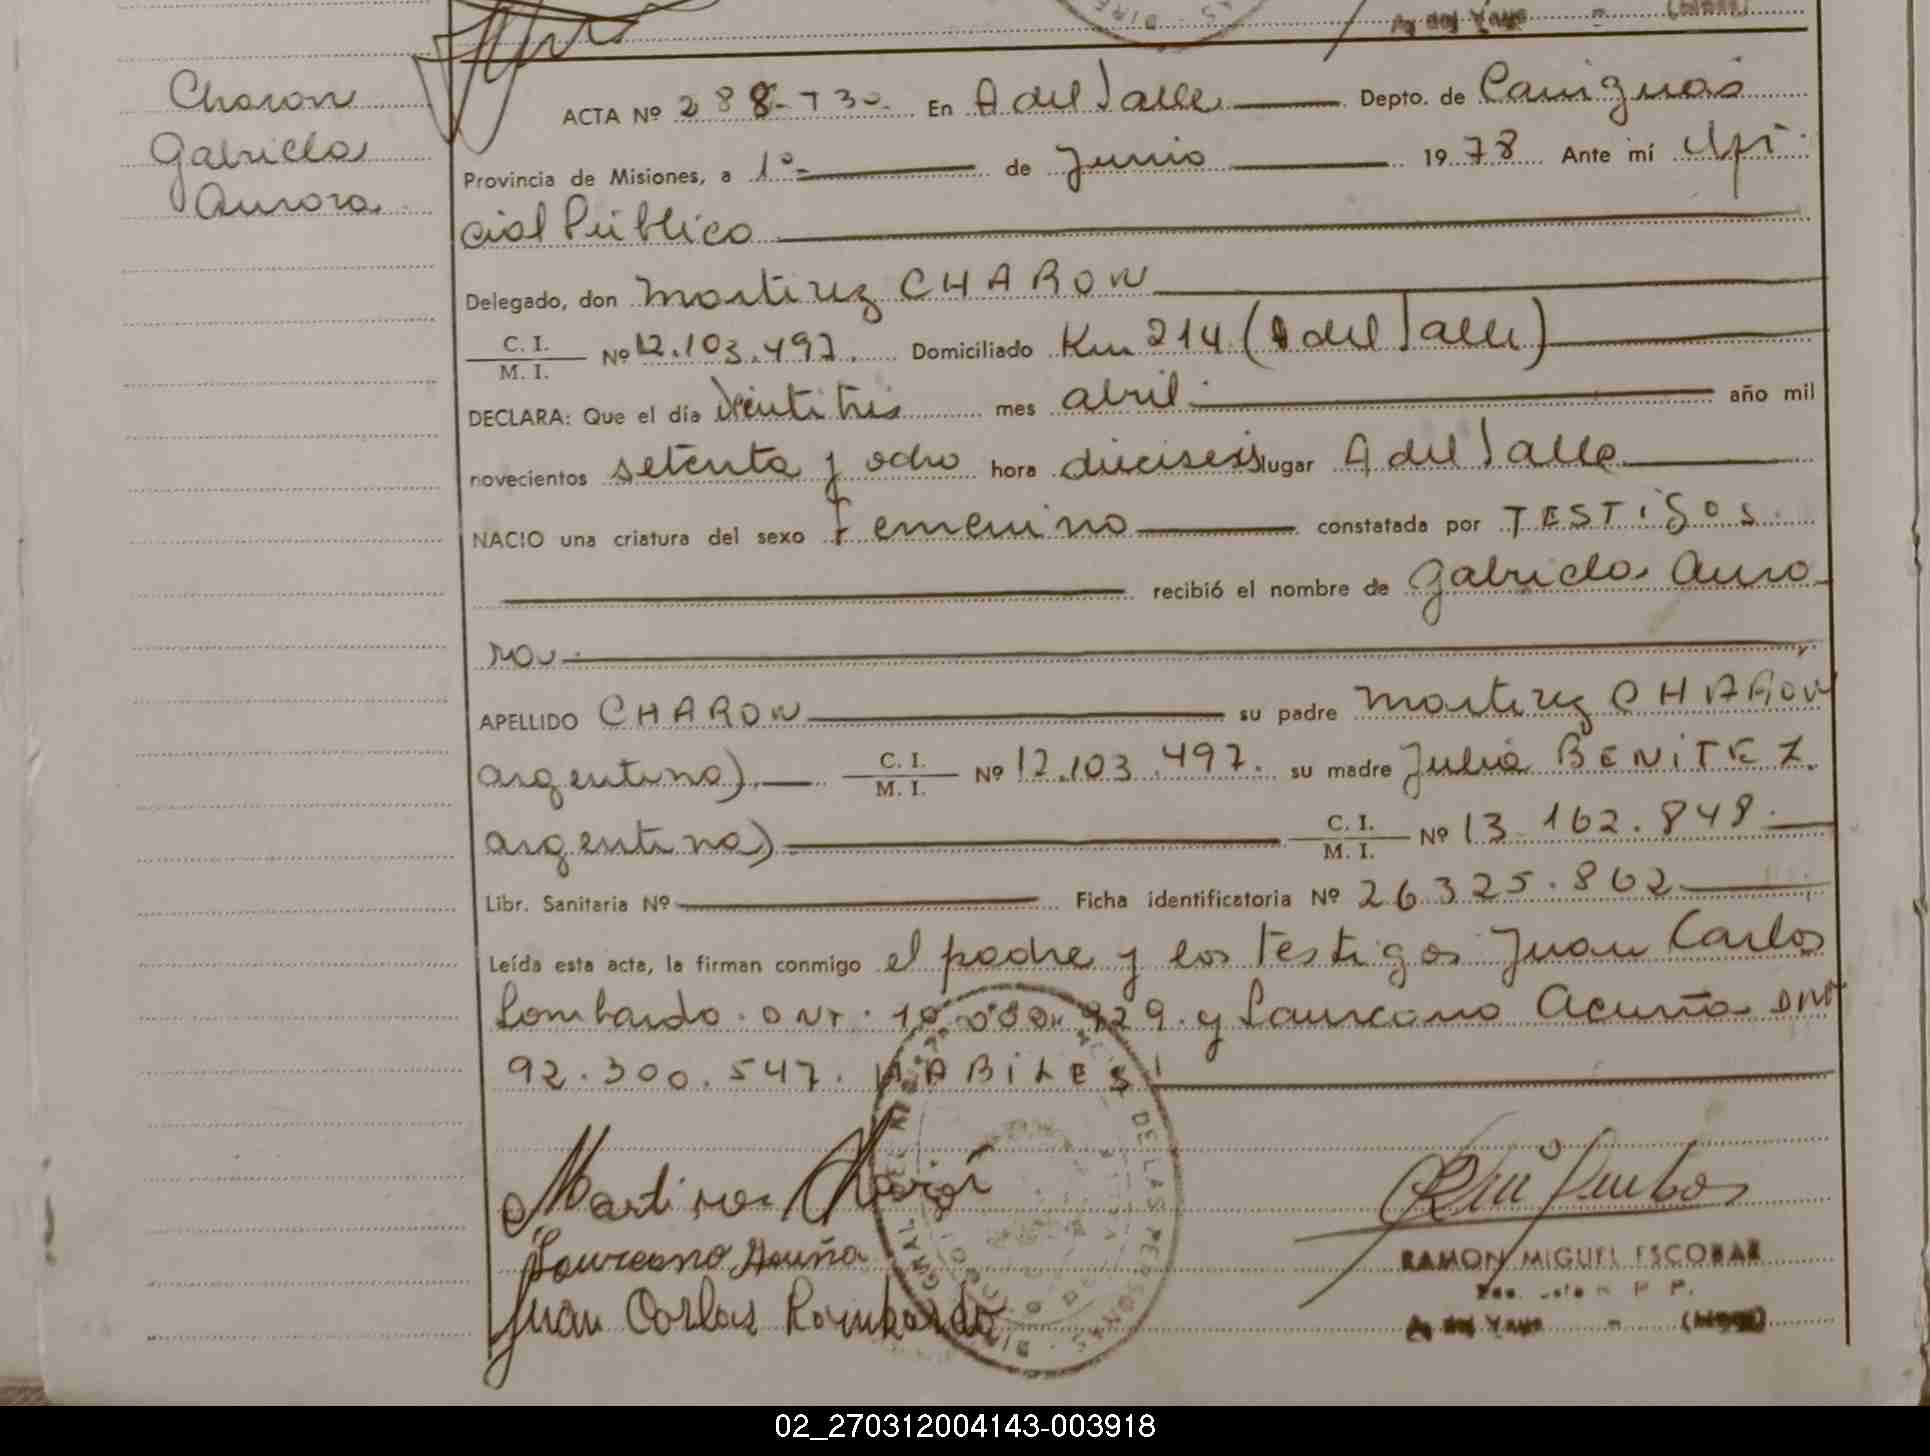 Charon
Gabriela
Aurora
ACTA Nº 288-T30. En A del Valle Depto. de Cainguás
Provincia de Misiones, a 1º de Junio 1978 Ante mí Ofi
cial Público
Delegado, don Martirez CHARON
C. I. / M. I. Nº 12.103.497. Domiciliado Km 214 (A del Valle)
DECLARA: Que el día Veintitres mes abril año mil
novecientos setenta y ocho hora dieciseis lugar A del Valle
NACIO una criatura del sexo femenino constatada por TESTIGOS
recibió el nombre de Gabriela Auro
ra.
APELLIDO CHARON su padre Martirez CHARON
argentino). C. I. / M. I. Nº 12.103.497. su madre Julia BENITEZ.
argentina) C. I. / M. I. Nº 13.162.848.
Libr. Sanitaria Nº Ficha identificatoria Nº 26.325.862
Leída esta acta, la firman conmigo el padre y los testigos Juan Carlos
Lombardo. DNI. 929. y Laureano Acuña DNI
92.300.547. HABILES
Martirez Charon
Laureano Acuña
Juan Carlos Lombardo
DE LAS PERSONAS
RAMON MIGUEL ESCOBAR
A. del Valle - (Mnes)
02_270312004143-003918